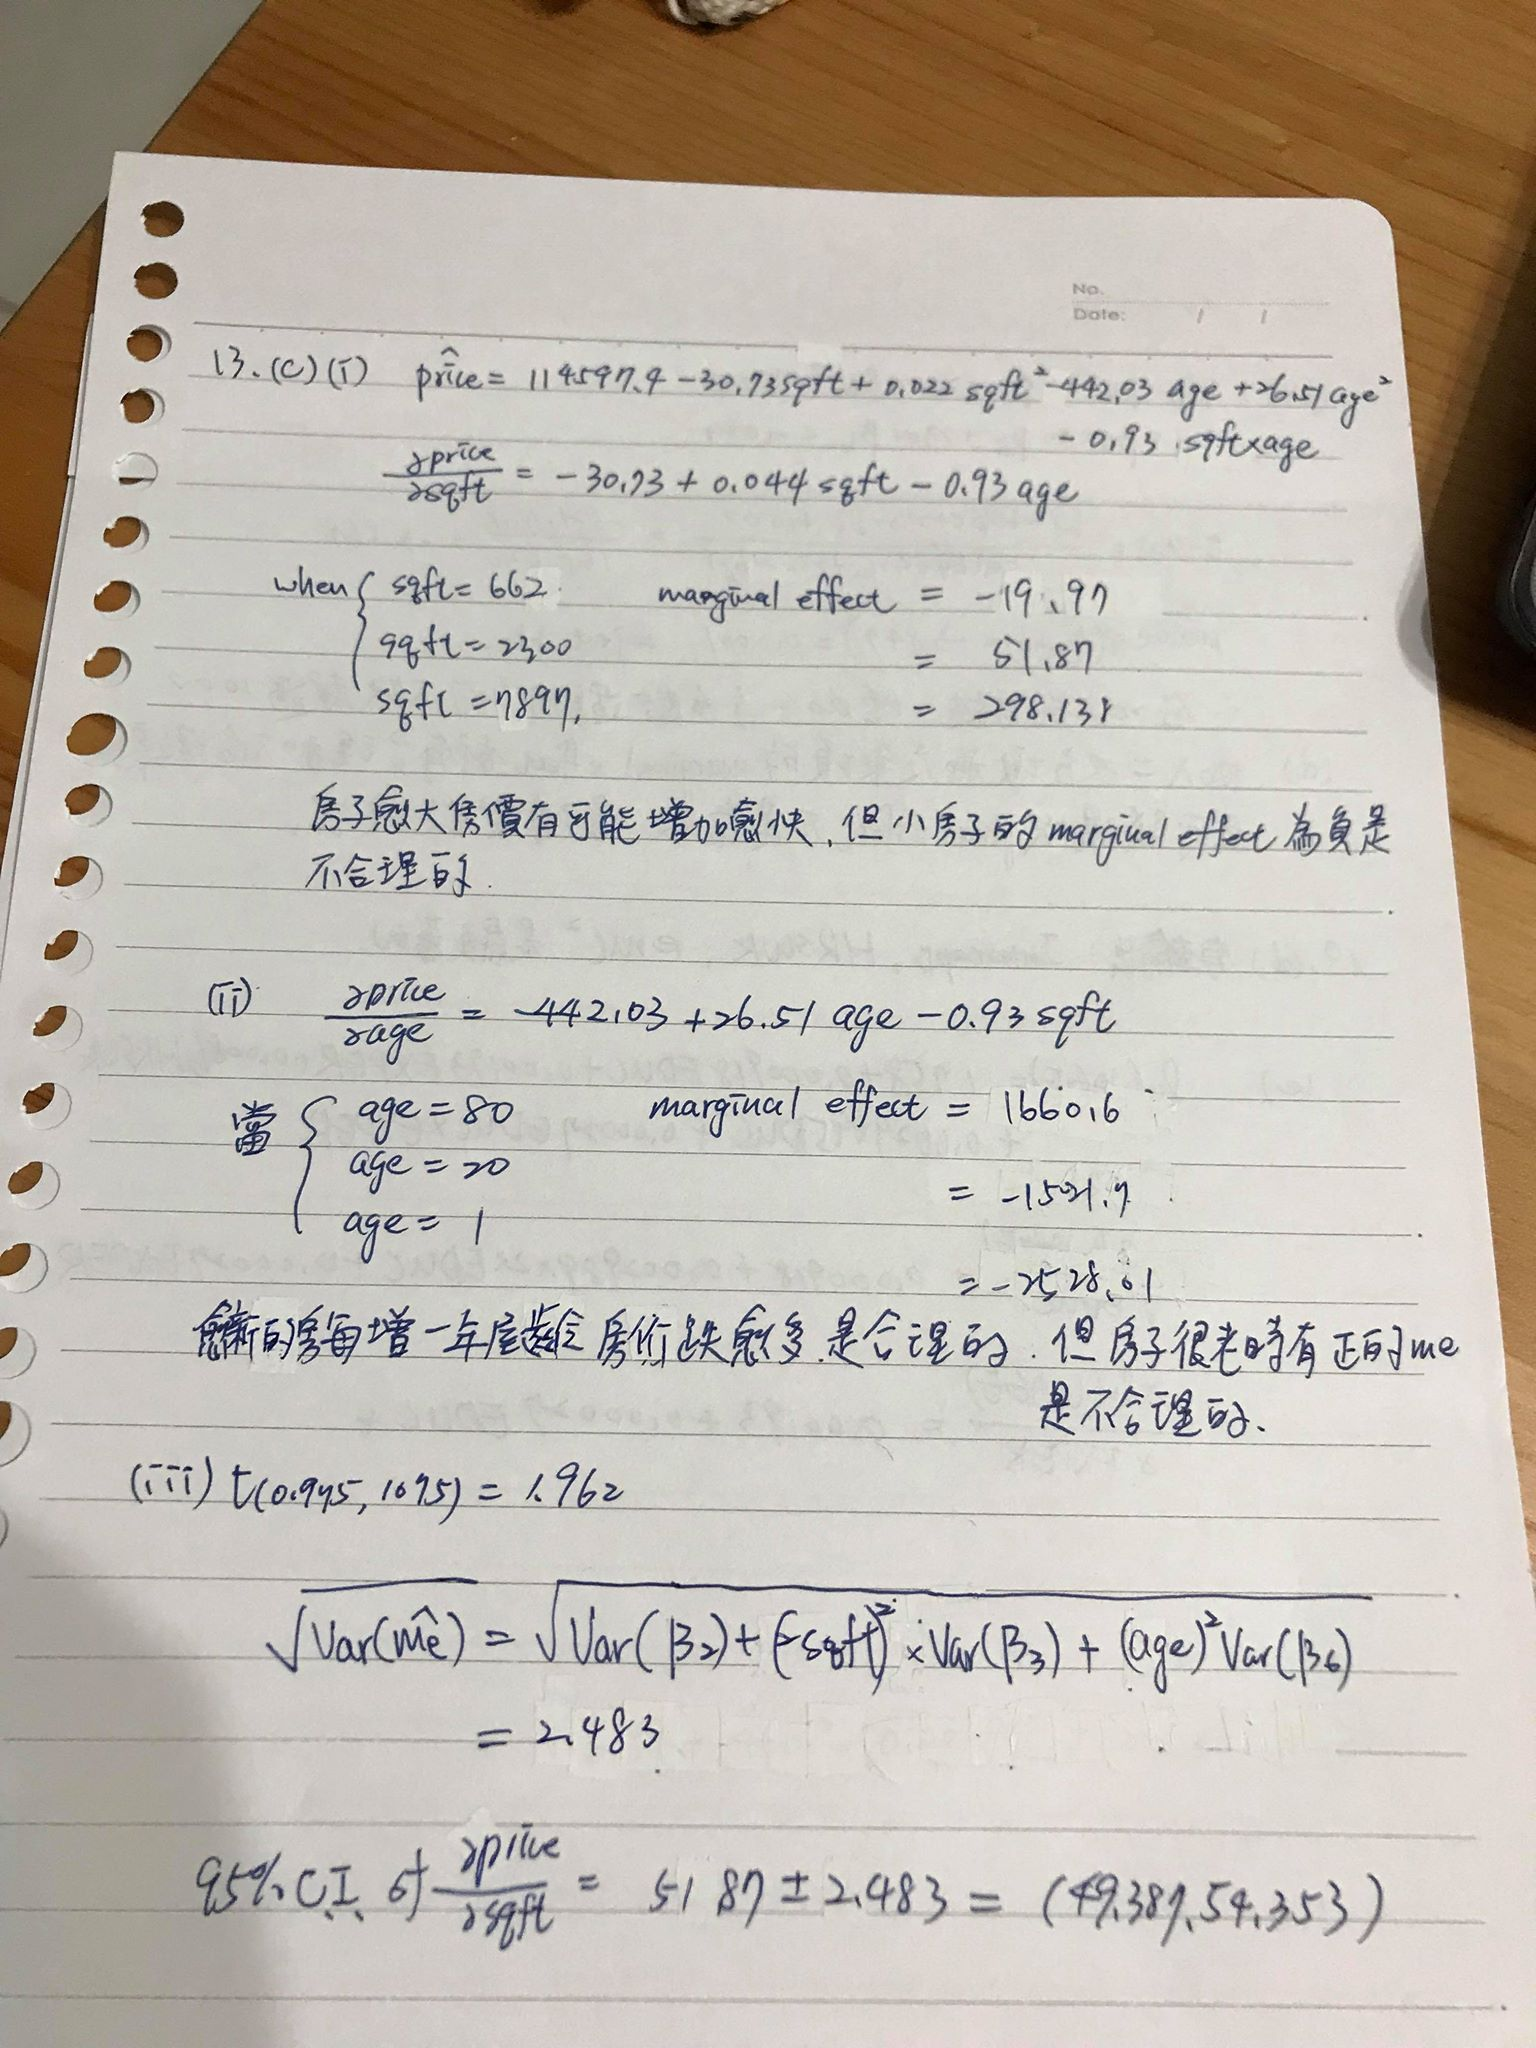 No.
Date: / /
13. (C) (i) prîce = 114597.4 - 30.73 sqft + 0.022 sqft² - 442.03 age + 26.51 age²
- 0.93 sqft×age
∂price/∂sqft = -30.73 + 0.044 sqft - 0.93 age
when { sqft = 662 marginal effect = -19.97
sqft = 2300 = 51.87
sqft = 7897. = 298.138
房子愈大售價有可能增加愈快, 但小房子的 marginal effect 為負是
不合理的.
(ii) ∂price/∂age = -442.03 + 26.51 age - 0.93 sqft
當 { age = 80 marginal effect = 1660.6
age = 20 = -1521.7
age = 1 = -2528.01
愈新的房每增一年屋齡房價跌愈多.是合理的. 但房子很老時有正的me
是不合理的.
(iii) t(0.975, 1075) = 1.962
√Var(m̂e) = √Var(β₂) + (2sqft)² × Var(β₃) + (age)² Var(β₆)
= 2.483
95% C.I. of ∂price/∂sqft = 51.87 ± 2.483 = (49.387, 54.353)